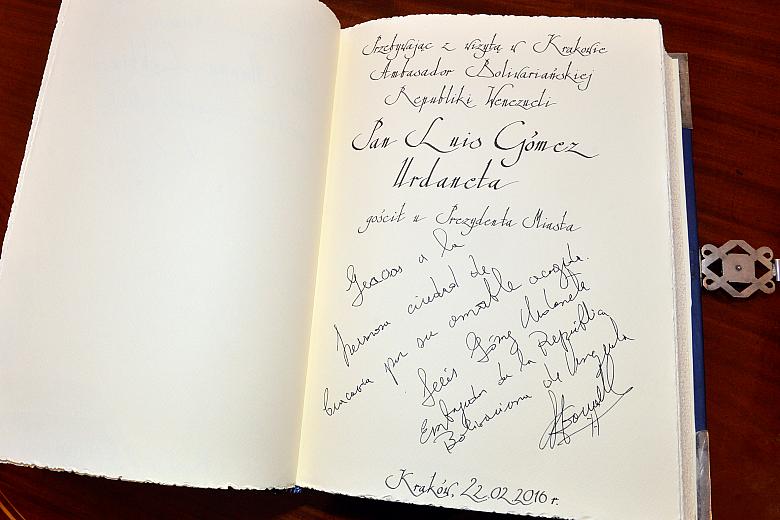 Przebywając z wizytą w Krakowie
Ambasador Boliwariańskiej
Republiki Wenezueli
Pan Luis Gómez
Urdaneta
gościł u Prezydenta Miasta
Gracias a la
hermosa ciudad de
Cracovia por su amable acogida.
Luis Gómez Urdaneta
Embajador de la República
Bolivariana de Venezuela
Kraków, 22.02.2016 r.